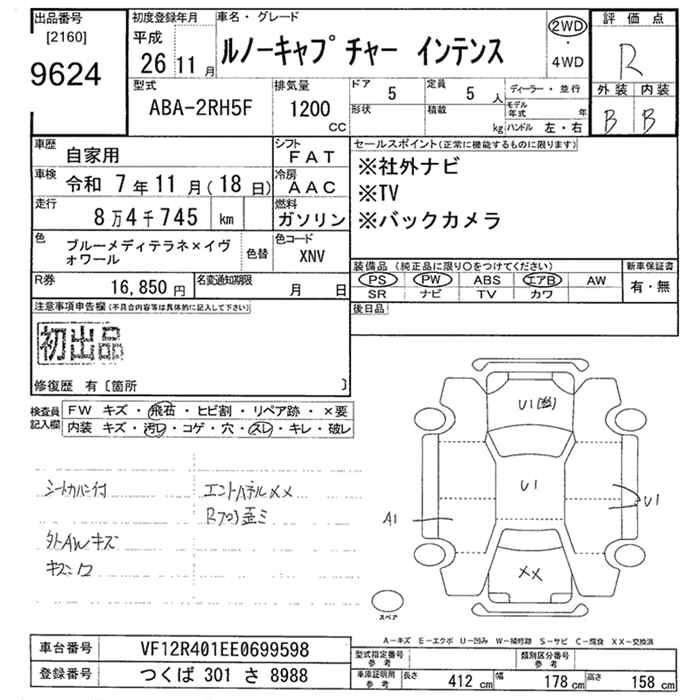 出品番号
[2160]
9624
初度登録年月
平成
26年11月
車名・グレード
ルノーキャプチャー インテンス
2WD
・
4WD
評価点
R
外装 内装
B B
型式
ABA-2RH5F
排気量
1200
CC
ドア
5
形状
定員
5人
積載
kg
ディーラー・並行
モデル年式 年
ハンドル 左・右
車歴
自家用
シフト
FAT
車検
令和 7年11月(18日)
冷房
AAC
走行
8万4千745 km
燃料
ガソリン
色
ブルーメディテラネ×イヴォワール
色替
色コード
XNV
R券
16,850円
名変通知期限
月 日
セールスポイント(正常に機能するものに限ります)
※社外ナビ
※TV
※バックカメラ
装備品(純正品に限り〇をつけてください)
PS PW ABS エアB AW
SR ナビ TV カワ
新車保証書
有・無
後日品
注意事項申告欄(不具合内容等は具体的に記入して下さい)
初出品
修復歴 有〔箇所 〕
検査員記入欄
FW キズ・飛石・ヒビ割・リペア跡・×要
内装 キズ・汚レ・コゲ・穴・スレ・キレ・破レ
シートカバー付
エンドパネルXX
Rフロア歪ミ
外AWキズ
キズ凹
U1
U1
U1
A1
XX
スペア
A-キズ E-エクボ U-凹み W-補修跡 S-サビ C-腐食 XX-交換済
車台番号
VF12R401EE0699598
登録番号
つくば 301 さ 8988
型式指定番号
参考
類別区分番号
参考
車庫証明用
参考
長さ 412cm
幅 178cm
高さ 158cm